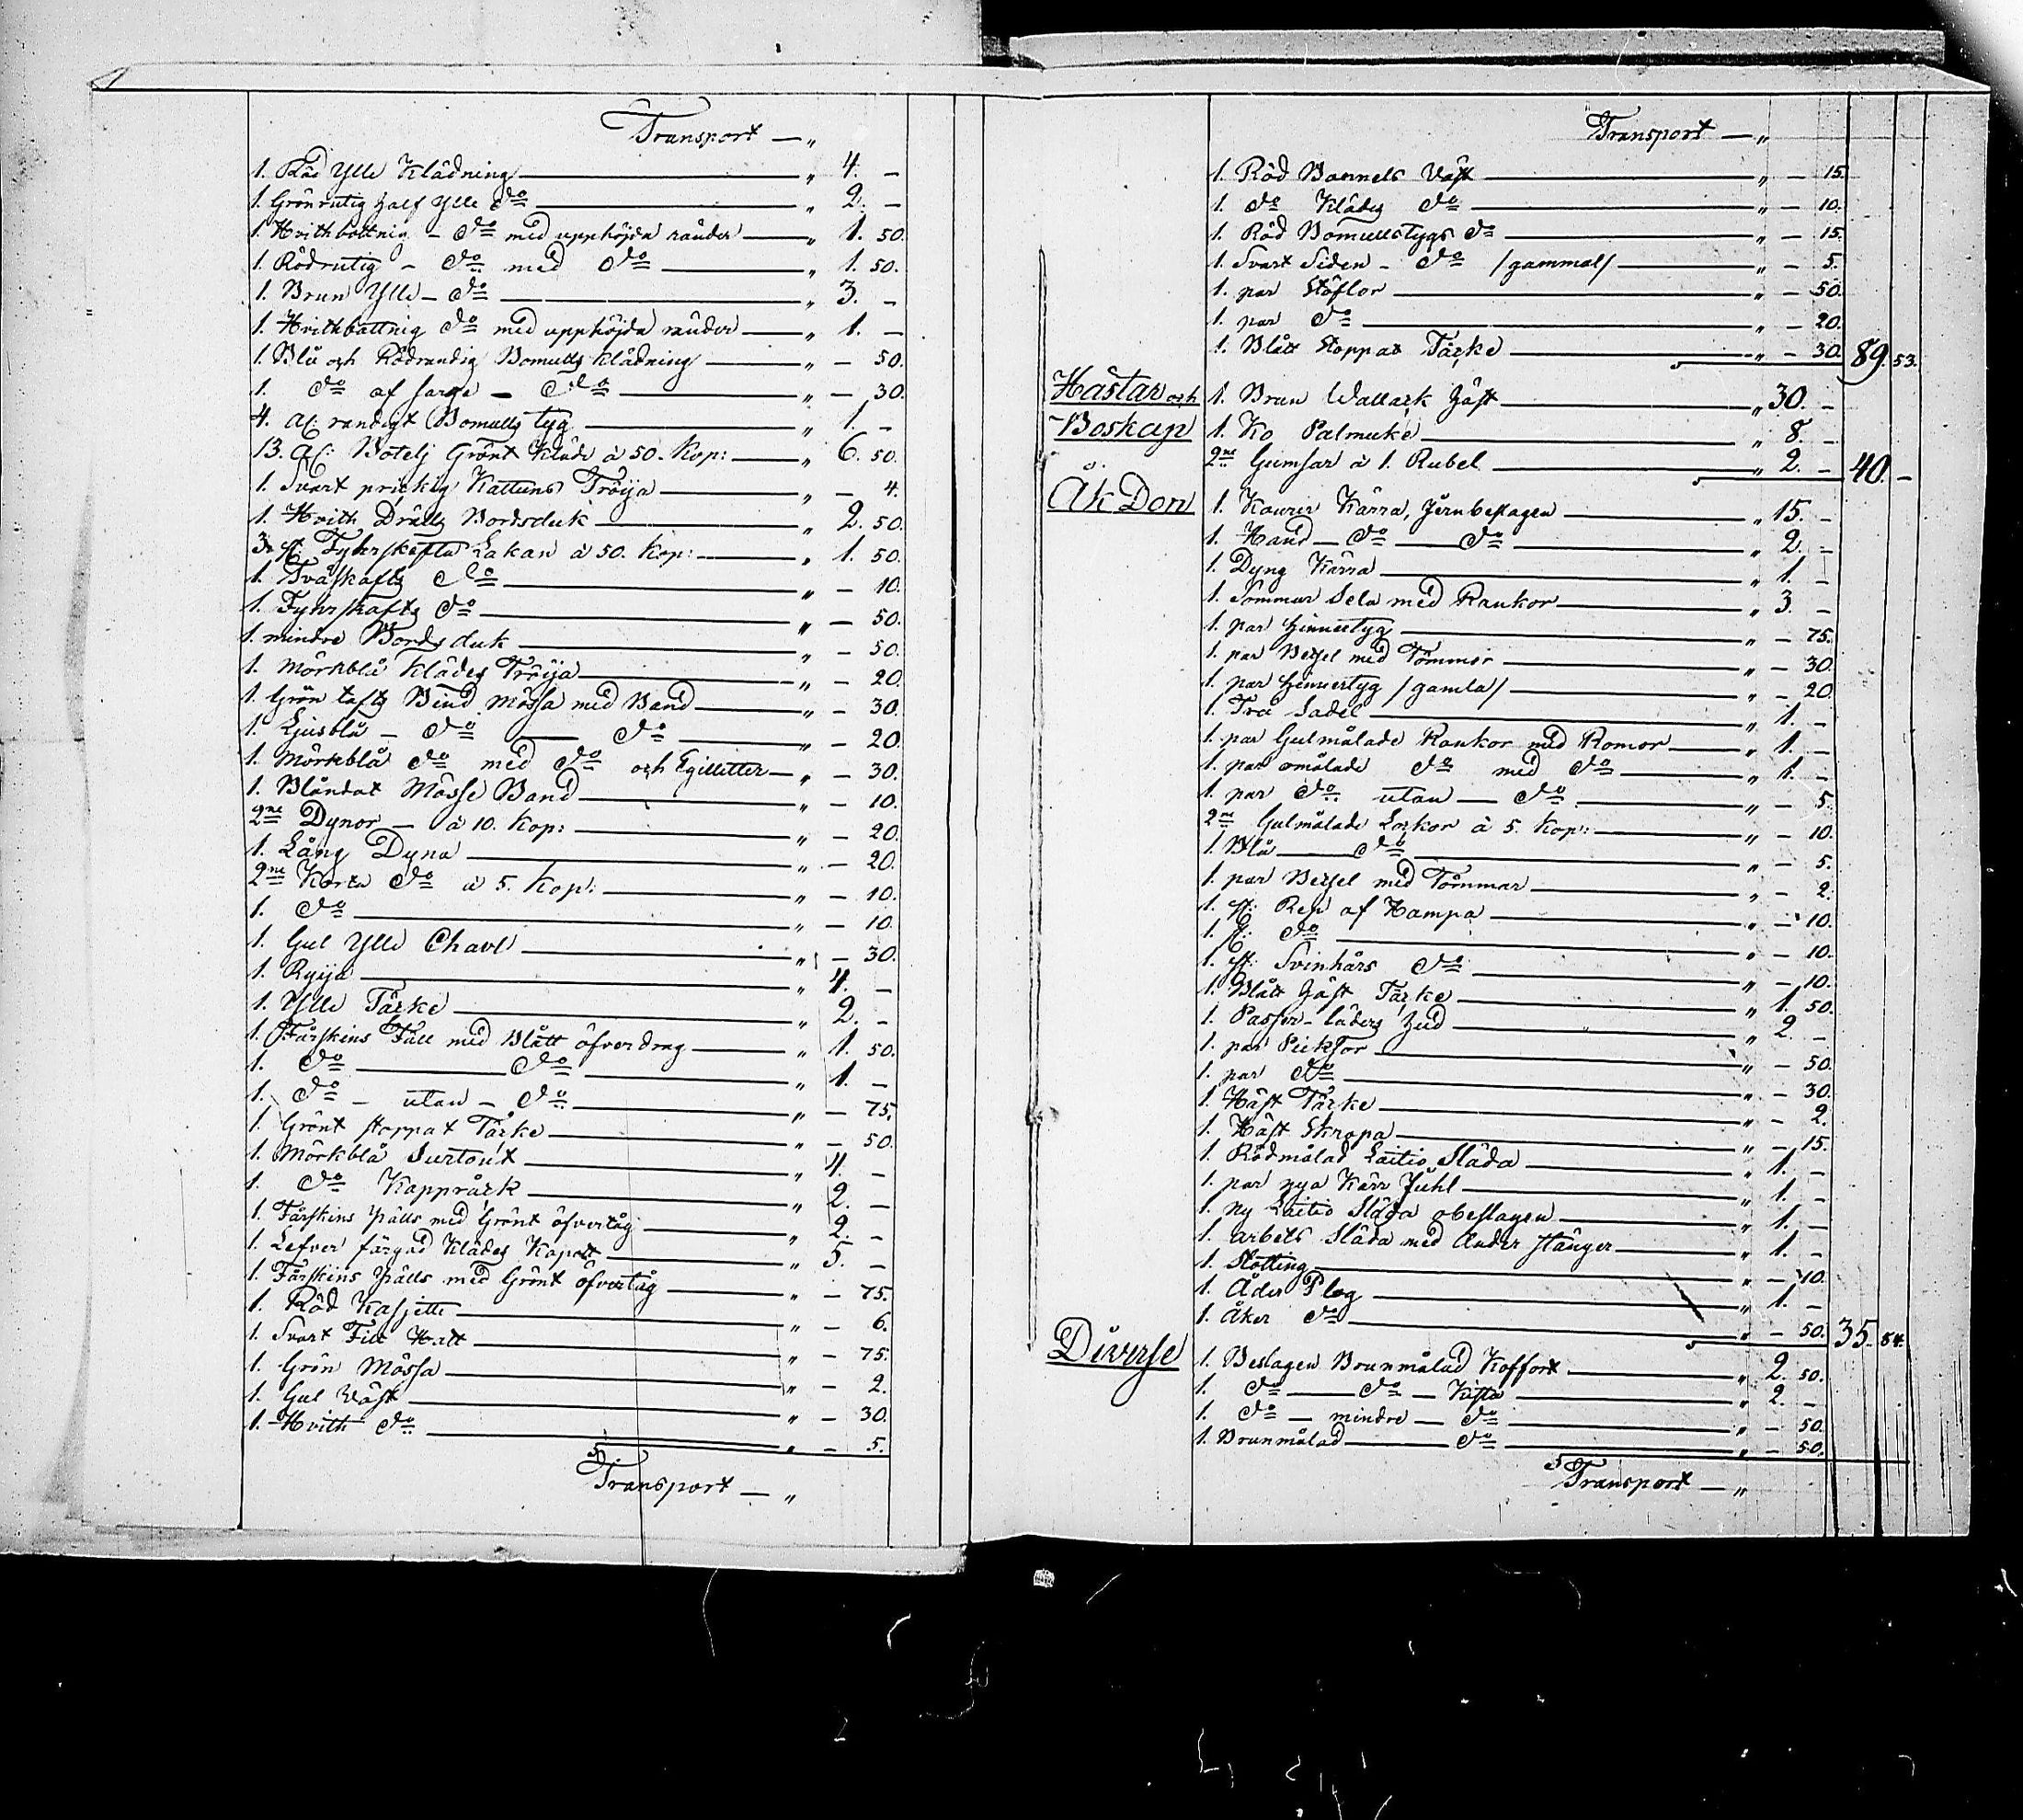 Transport — „
1. Röd Ylle Klädning — „ 4. –
1. Grönrutig half Ylle do — „ 2. –
1. Hvithbottnig – do med upphöjda ränder — „ 1. 50.
1. Rödrutig – do med do — „ 1. 50.
1. Brun Ylle – do — „ 3. –
1. Hvithbottnig do med upphöjda ränder — „ 1. –
1. Blå och Rödrandig Bomulls klädning — „ – 50.
1. do af sarge – do — „ – 30.
4. Al: randigt Bomulls tyg — „ 1. –
13. Al: Botelj Grönt Kläde à 50. Kop: — „ 6. 50.
1. Svart prickig Kattuns Tröija — „ – 4.
1. Hvith Drälls Bordsduk — „ 2. 50.
3. st. Fyhrskafta Lakan à 50. Kop: — „ 1. 50.
1. Tvåskafts do — „ – 10.
1. Fyhrskafts do — „ – 50.
1. mindre Bordsduk — „ – 50.
1. Mörkblå Klädes Tröija — „ – 20.
1. Grön tafts Bind Mössa med Band — „ – 30.
1. Ljusblå – do — do — „ – 20.
1. Mörkblå do med do och Egilletter — „ – 30.
1. Blåndat Mösse Band — „ – 10.
2ne Dynor – à 10. Kop: — „ – 20.
1. Lång Dyna — „ – 20.
2ne Korta do à 5. Kop: — „ – 10.
1. do — „ – 10.
1. Gul Ylle Chavl — „ – 30.
1. Ryija — „ 4. –
1. Ylle Täcke — „ 2. –
1. Fårskins Fäll med Blått öfverdrag — „ 1. 50.
1. do — do — „ 1. –
1. do – utan – do — „ – 75.
1. Grönt stoppat Täcke — „ – 50.
1. Mörkblå Surtout — „ 4. –
1. do Kappråck — „ 2. –
1. Fårskins Pälls med Grönt öfvertåg — „ 2. –
1. Lefver färgad Klädes Kapott — „ 5. –
1. Fårskins Pälls med Grönt öfvertåg — „ – 75.
1. Röd Kasjette — „ – 6.
1. Svart Filt Hatt — „ – 75.
1. Grön Mössa — „ – 2.
1. Gul Väst — „ – 30.
1. Hvith do — „ – 5.
Transport — „
Transport — „
1. Röd Bonnels Väst — „ – 15.
1. do Klädes do — „ – 10.
1. Röd Bomullstygs do — „ – 15.
1. Svart Siden – do /gammal/ — „ – 5.
1. par Stöflor — „ – 50.
1. par do — „ – 20.
1. Blått Stoppat Täcke — „ – 30. 89. 53.
Hästar och 1. Brun Wallack häst — „ 30. –
Boskap 1. Ko Palmuke — „ 8. –
2ne Gumsar à 1. Rubel — „ 2. – 40. –
Åk Don 1. Kourir Kärra, Jernbeslagen — „ 15. –
1. Hand – do — do — „ 2. –
1. Dyng Kärra — „ 1. –
1. Sommar Sela med Rankor — „ 3. –
1. par himertyg — „ – 75.
1. par Betsel med Tömmar — „ – 30.
1. par himertyg /gamla/ — „ – 20.
1. Trä Sadel — „ 1. –
1. par Gulmålade Rankor med Romor — „ 1. –
1. par omålade do med do — „ 1. –
1. par do utan — do — „ – 5.
2ne Gulmålade Lockor à 5. Kop: — „ – 10.
1. Blå — do — „ – 5.
1. par Betsel med Tömmar — „ – 2.
1. st: Rep af Hampa — „ – 10.
1. st: do — „ – 10.
1. st: Svinhårs do — „ – 10.
1. Blått häst Täcke — „ 1. 50.
1. Passor-läders hud — „ 2. –
1. par Picktor — „ – 50.
1. par do — „ – 30.
1. Häst Täcke — „ – 2.
1. Häst Skropa — „ – 15.
1. Rödmålad Laitio Släda — „ 1. –
1. par nya Kärr Juhl — „ 1. –
1. ny Laitio Släda obeslagen — „ 1. –
1. arbets Släda med Under stänger — „ 1. –
1. Stötting — „ – 10.
1. Åder Plog — „ 1. –
1. Åker do — „ – 50. 35. 84.
Diverse 1. Beslagen Brunmålad Koffort — „ 2. 50.
1. do — do — Kista — „ 2. –
1. do — mindre — do — „ – 50.
1. Brunmålad — do — „ – 50.
Transport — „